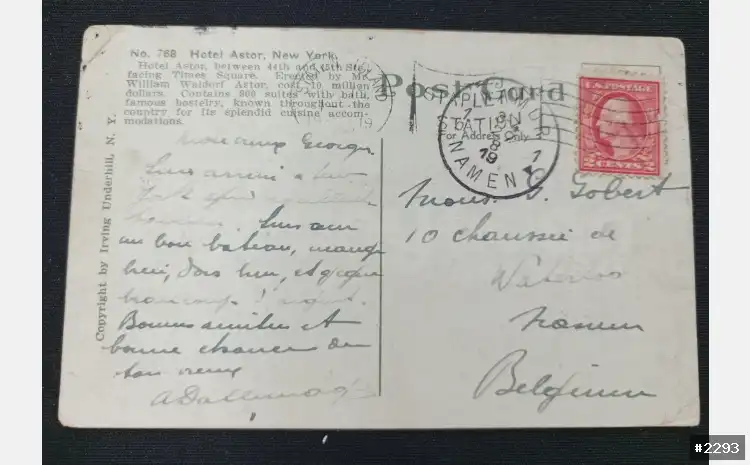 No. 768 Hotel Astor, New York.
Hotel Astor, between 44th and 45th Sts.
facing Times Square. Erected by Mr.
William Waldorf Astor, cost 10 million
dollars. Contains 800 suites with bath,
famous hostelry, known throughout the
country for its splendid cuisine accom-
modations.
Copyright by Irving Underhill, N. Y.
Post Card
For Address Only
STAPLETON
STATION
NAMUR
NAMEN
19
U.S. POSTAGE
2 CENTS 2
Mon cher Georges
suis arrivé à New
York
Suis sur
un bon bateau, mange
bien, dors bien, et gagne
beaucoup d'argent.
Bonnes amitiés et
bonne chance de
ton vieux
Monsr. G. Gobert
10 chaussée de
Waterloo
Namur
Belgium
#2293